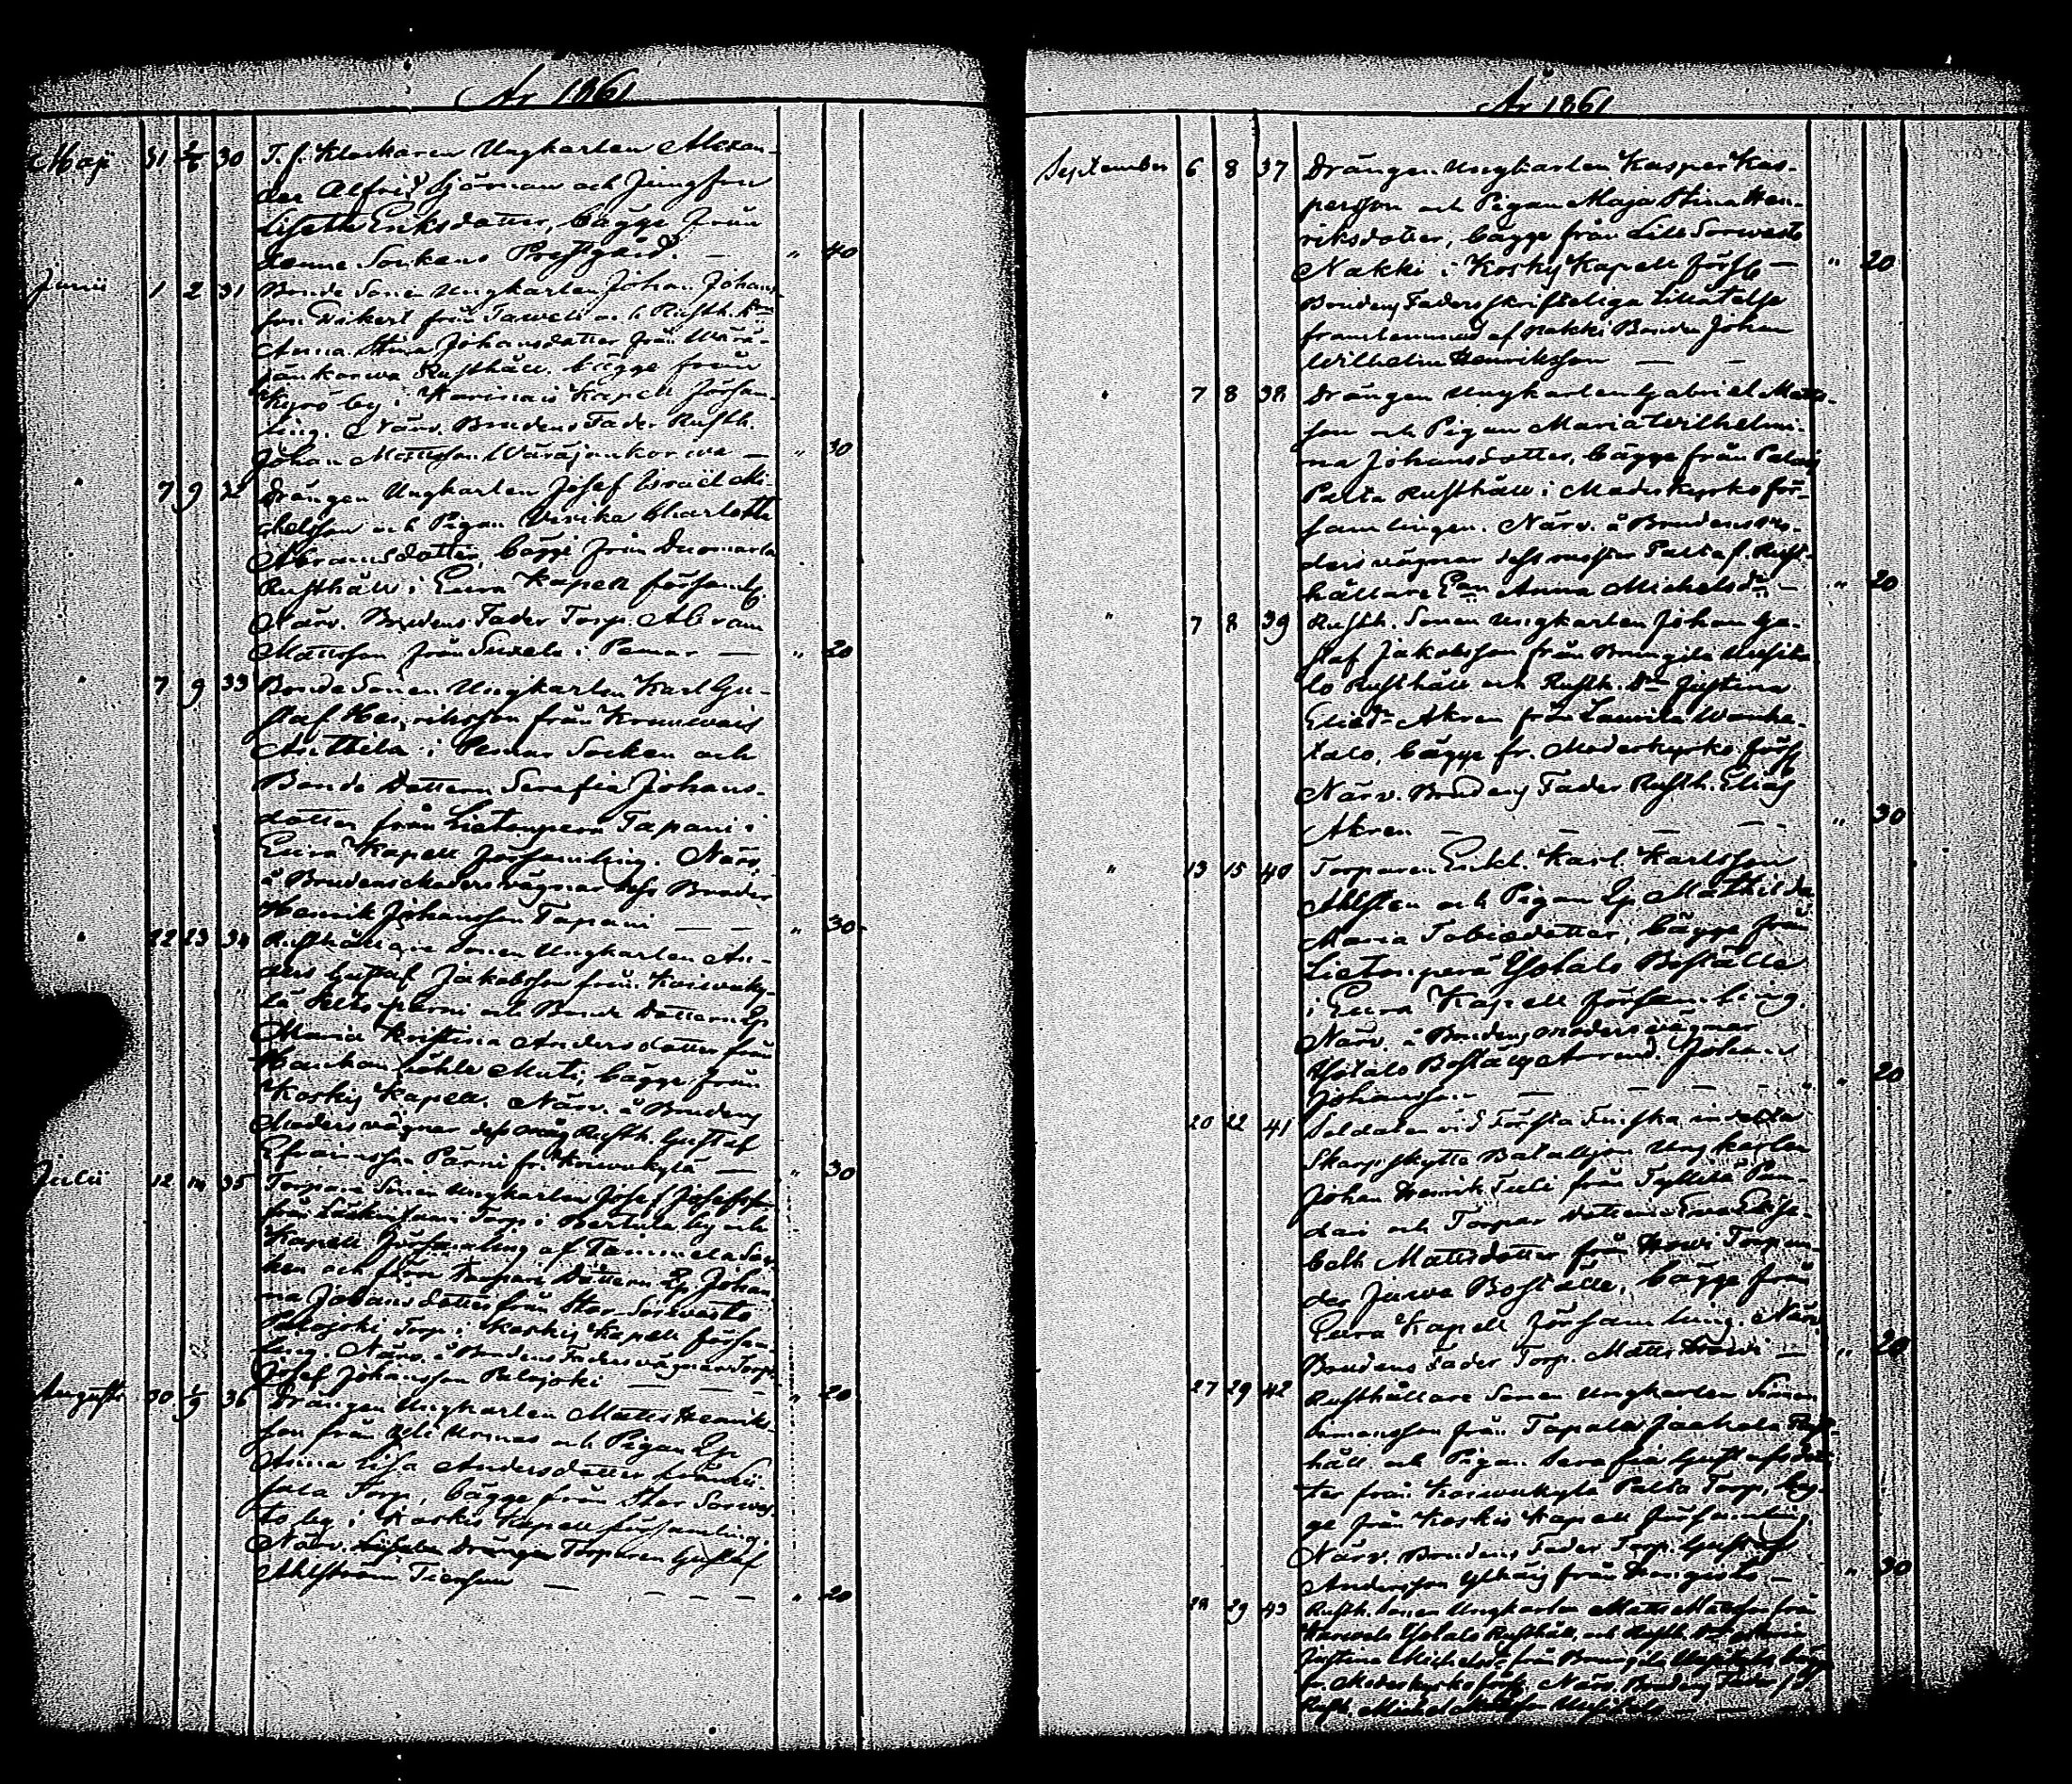 År 1861
Maji 31 2/6 30 T. f. Klockaren Ungkarlen Alexan-
der Alfrid Hjörman och Jungfrun
Lisette Eriksdotter, bägge från
denna Sockens Prestgård. — " 40
Junii 1 2 31 Bonde Sonen Ungkarlen Johan Johans-
son från och Rusth. Dn
Anna Stina Johansdotter från Wärä-
jänkorwa Rusthåll, bägge från
Kyrö by i Karinais Kapell försam-
ling. Närv. Brudens Fader Rusth.
Johan Mattsson Wäräjänkorwa — " 30
" 7 9 32 Drängen Ungkarlen Josef Israël Mi-
chelsson och Pigan Ulrika Charlotta
Abramsdotter, bägge från
Rusthåll i Eura Kapell församlg
Närv. Brudens Fader Torp. Abram
Mattsson från i Pemar — " 20
" 7 9 33 Bonde Sonen Ungkarlen Karl Gu-
staf Henriksson från
Anttila i Pemar Socken och
Bonde Dottern Serafia Johans-
dotter från Lietsonperä Tapani i
Eura Kapell församling. Närv.
å Brudens Moders vägnar dess Broder
Henrik Johansson Tapani — — " 30
" 22 23 34 Rusthållare Sonen Ungkarlen An-
ders Gustaf Jakobsson från Koiwuky-
lä Pelto-pärni och Bonde Dottern Ep
Maria Kristina Andersdotter från
Muti, bägge från
Koskis Kapell. Närv. å Brudens
Moders vägnar dess måg Rusth. Gustaf
Efraimsson Pärni fr. Koiwukylä — " 30
Julii 12 14 35 Torpare Sonen Ungkarlen Josef Josefsson
från Torp i Pertula by och
Kapell församling af Tammela Soc-
ken och Torpare Dottern Ep. Johan-
na Johansdotter från Stor Sorwasto
Palojoki Torp i Koskis Kapell försam-
ling. Närv. å Brudens Faders vägnar Torp.
Josef Johansson Palojoki — — — " 20
Augusti 30 1/9 36 Drängen Ungkarlen Matts Henriks-
son från och Pigan Ep
Anna Lisa Andersdotter från
Torp, bägge från Stor Sorwas-
to by i Koskis Kapell församling.
Närv. Drängen Torparen Gustaf
Ahlström — — — — " 20
År 1861
September 6 8 37 Drängen Ungkarlen Kasper Kas-
persson och Pigan Maja Stina Hen-
riksdotter, bägge från Lill Sorwasto
Nakki i Koskis Kapell förslg — " 20
Brudens Faders skrifteliga tillåtelse
framlemnad af Nakki Bonden Johan
Wilhelm Henriksson — —
" 7 8 38 Drängen Ungkarlen Gabriel Matts-
son och Pigan Maria Wilhelmi-
na Johansdotter, bägge från Palais
Palta Rusthåll i Moderkyrko för-
samlingen. Närv. å Brudens
ders vägnar dess Palta f. Rust-
hållare Enn Anna Michelsdr — " 20
" 7 8 39 Rusth. Sonen Ungkarlen Johan Gu-
staf Jakobsson från Brungila Uusita-
lo Rusthåll och Rusth. Dn Justina
Eliedr Akren från Laurila Wanha-
talo, bägge fr. Moderkyrko förslg
Närv. Brudens Fader Rusth. Elias
Akren — — — — " 30
" 13 15 40 Torparen Enkl. Karl Karlsson
Ahlsten och Pigan Ep Mathilda
Maria Tobiedotter, bägge från
Lietsonperä Ylötalo Boställe
i Eura Kapell församling.
Närv. å Brudens Moders vägnar
Ylötalo Boställs Arrend. Johan
Johansson — — — " 20
20 22 41 Soldaten vid Första Finska indelta
Skarpskytte Bataljon Ungkarlen
Johan Henrik Tuli från
och Torpar dottern Eva Elisa-
beth Mattsdotter från Howi Torp un-
der Juwa Boställe, bägge från
Eura Kapell församling. Närv.
Brudens Fader Torp. Matts Howi — " 20
27 29 42 Rusthållare Sonen Ungkarlen Simon
Simonsson från Tapala Jaakola Rust-
håll och Pigan Serafia Gustafsdot-
ter från Koiwukylä Palta Torp, bäg-
ge från Koskis Kapell församling.
Närv. Brudens Fader Torp. Gustaf
Andersson från — " 30
28 29 43 Rusth. Sonen Ungkarlen Matts Mattsson från
Ylötalo Rusthåll, och Rusth.
Justina Michelsdr från Brungila bägge
fr. Moderkyrko förslg. Närv. Brudens Fader f. d.
Rusth. Michel